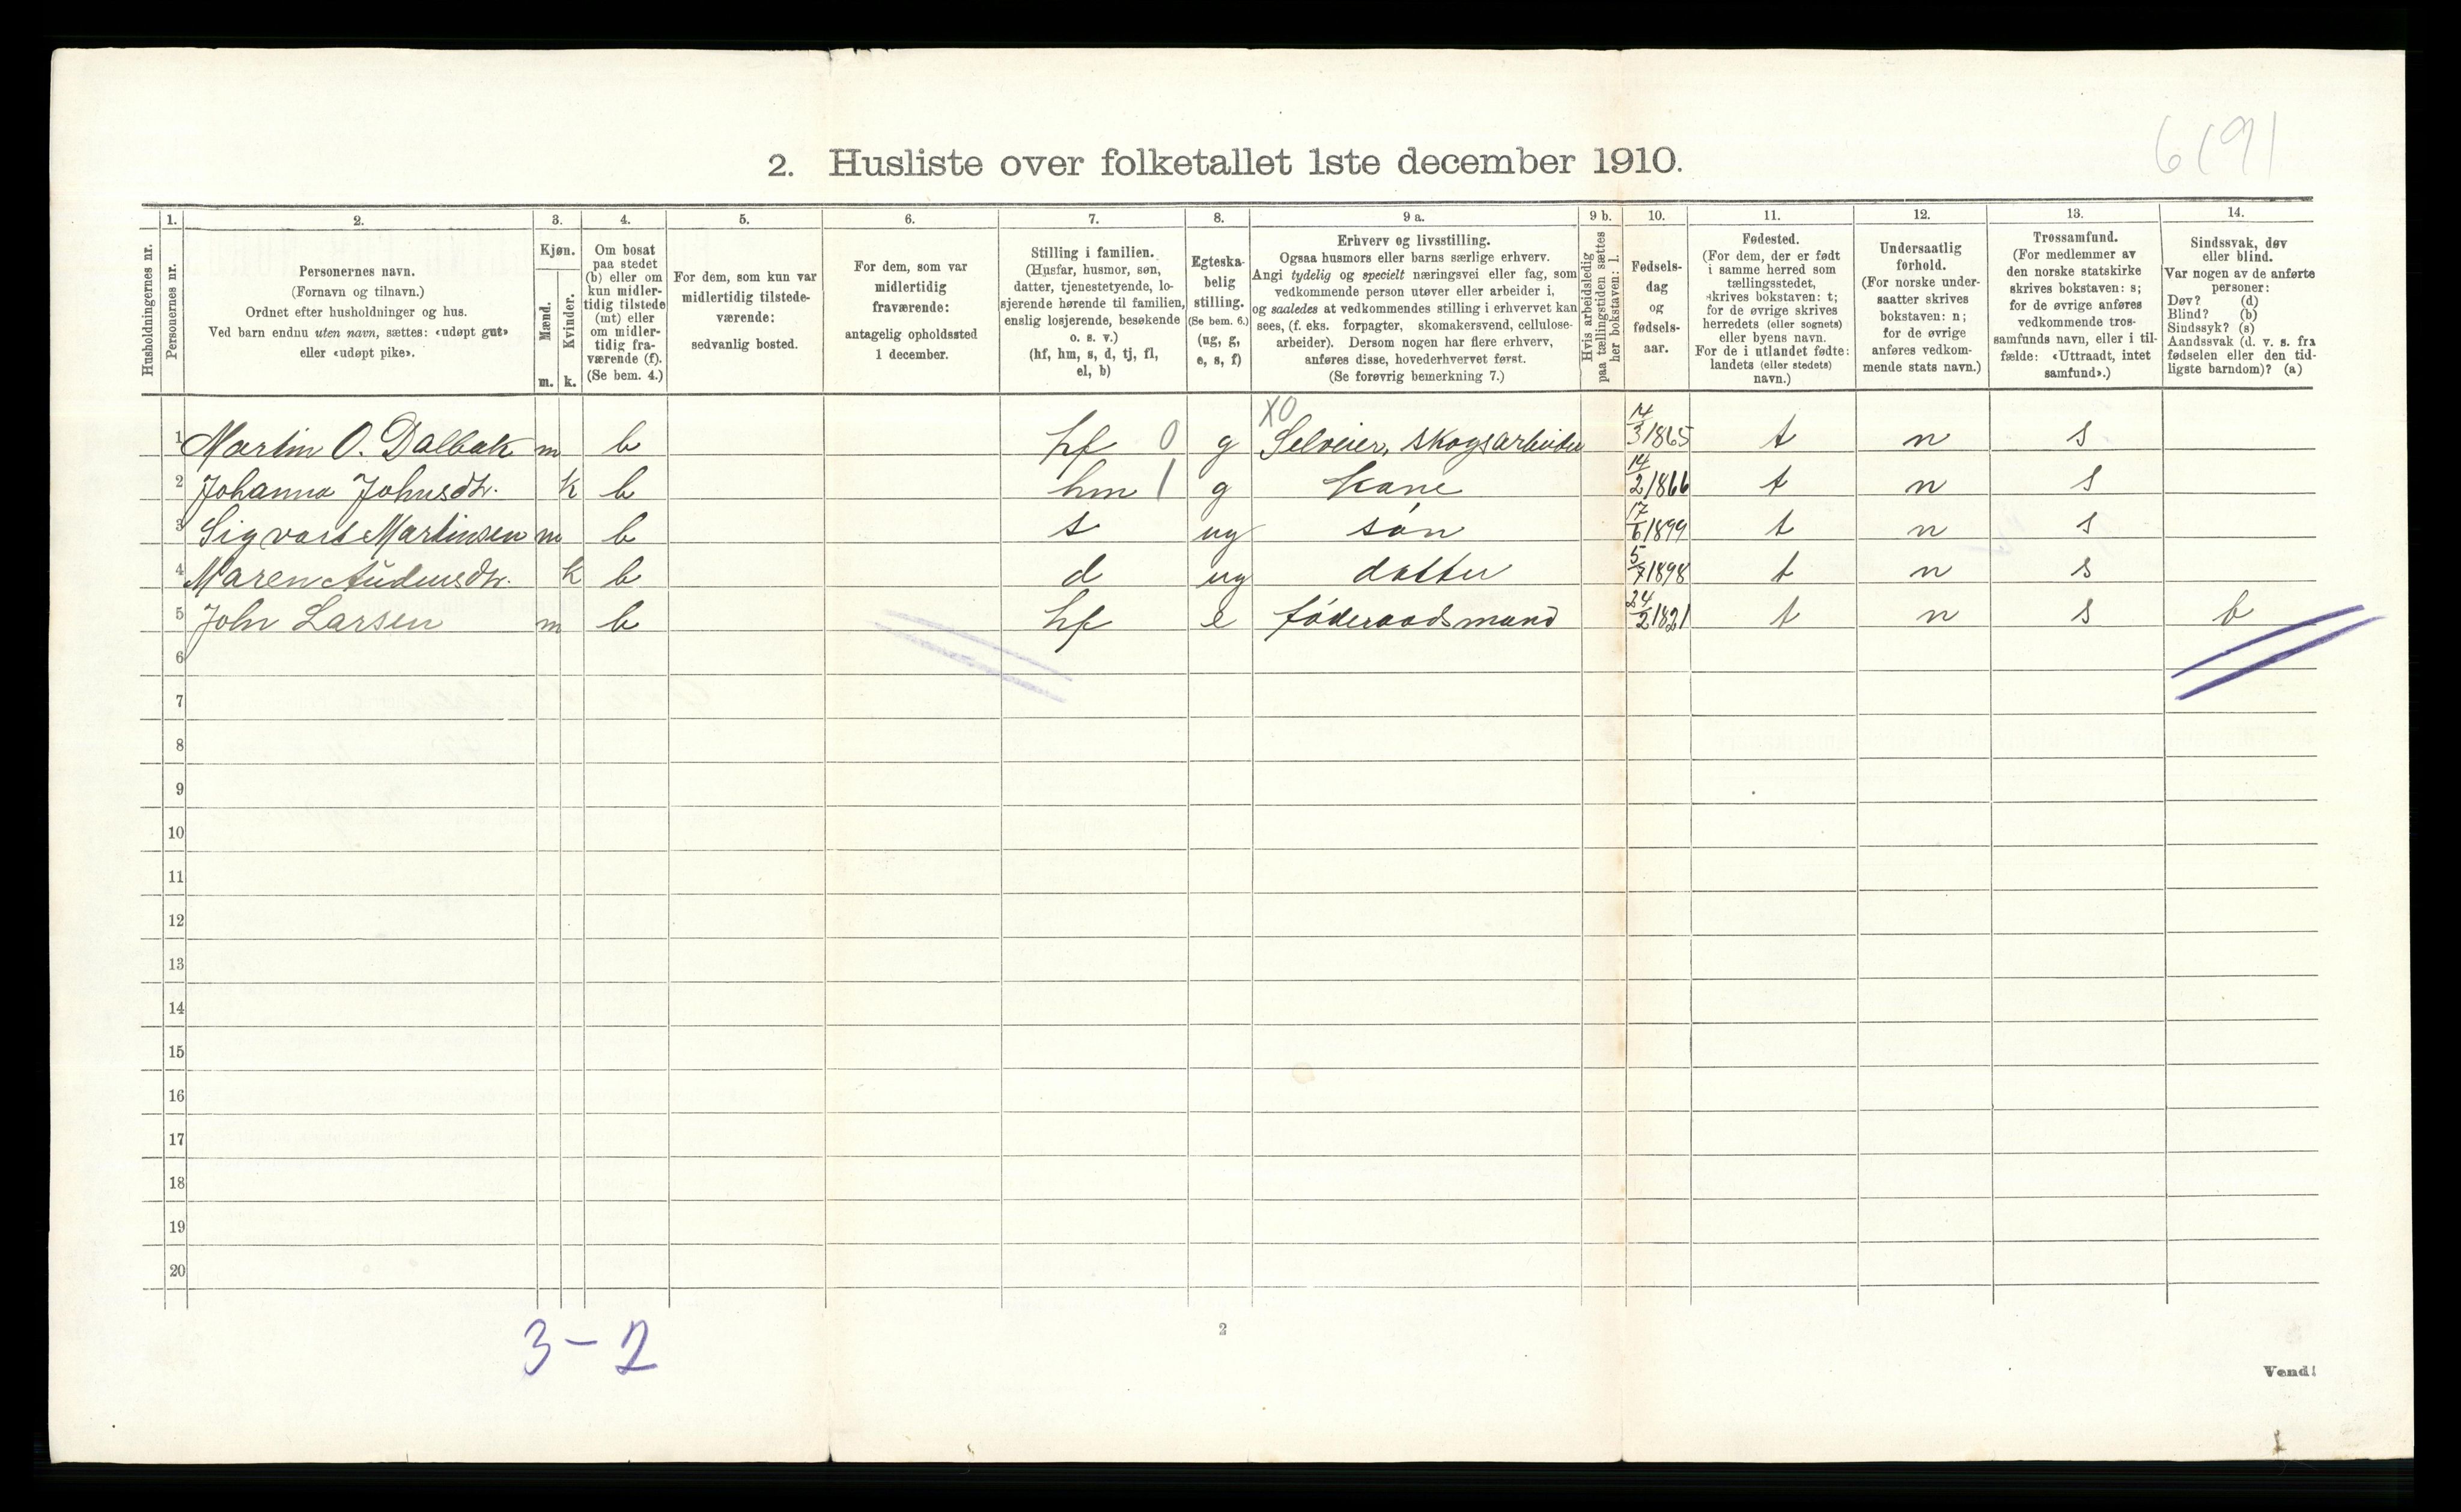 6191
2. Husliste over folketallet 1ste december 1910.
Husholdningernes nr.
1. Personernes nr.
2. Personernes navn. (Fornavn og tilnavn.) Ordnet efter husholdninger og hus. Ved barn endnu uten navn, sættes: «udøpt gut» eller «udøpt pike».
3. Kjøn. Mænd. m. Kvinder. k.
4. Om bosat paa stedet (b) eller om kun midlertidig tilstede (mt) eller om midlertidig fraværende (f). (Se bem. 4.)
5. For dem, som kun var midlertidig tilstedeværende: sedvanlig bosted.
6. For dem, som var midlertidig fraværende: antagelig opholdssted 1 december.
7. Stilling i familien. (Husfar, husmor, søn, datter, tjenestetyende, losjerende hørende til familien, enslig losjerende, besøkende o. s. v.) (hf, hm, s, d, tj, fl, el, b)
8. Egteskabelig stilling. (Se bem. 6.) (ug, g, e, s, f)
9 a. Erhverv og livsstilling. Ogsaa husmors eller barns særlige erhverv. Angi tydelig og specielt næringsvei eller fag, som vedkommende person utøver eller arbeider i, og saaledes at vedkommendes stilling i erhvervet kan sees, (f. eks. forpagter, skomakersvend, cellulosearbeider). Dersom nogen har flere erhverv, anføres disse, hovederhvervet først. (Se forøvrig bemerkning 7.)
9 b. Hvis arbeidsledig paa tællingstiden sættes her bokstaven: l.
10. Fødselsdag og fødselsaar.
11. Fødested. (For dem, der er født i samme herred som tællingsstedet, skrives bokstaven: t; for de øvrige skrives herredets (eller sognets) eller byens navn. For de i utlandet fødte: landets (eller stedets) navn.)
12. Undersaatlig forhold. (For norske undersaatter skrives bokstaven: n; for de øvrige anføres vedkommende stats navn.)
13. Trossamfund. (For medlemmer av den norske statskirke skrives bokstaven: s; for de øvrige anføres vedkommende trossamfunds navn, eller i tilfælde: «Uttraadt, intet samfund».)
14. Sindssvak, døv eller blind. Var nogen av de anførte personer: Døv? (d) Blind? (b) Sindssyk? (s) Aandssvak (d. v. s. fra fødselen eller den tidligste barndom)? (a)
XO
1 Martin O. Dalbak m b hf 0 g Selveier, skogsarbeider 14/3 1865 t n s
2 Johanna Johnsdtr. k b hm 1 g Kone 14/2 1866 t n s
3 Sigvart Martinsen m b s ug søn 17/6 1899 t n s
4 Maren Audensdtr. k b d ug datter 5/7 1898 t n s
5 John Larsen m b hf e føderaadsmand 24/2 1821 t n s b
6
7
8
9
10
11
12
13
14
15
16
17
18
19
20
3 - 2
2
Vend!